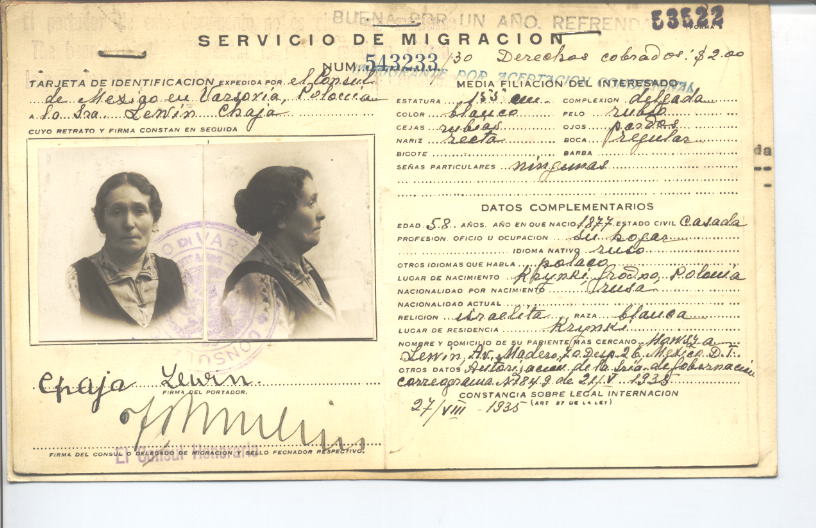 BUENA POR UN AÑO. REFREND
53522
FORMA
SERVICIO DE MIGRACION
NUM. 543233 /30 Derechos cobrados: $2.00
POR ACEPTACION
TARJETA DE IDENTIFICACION EXPEDIDA POR el Consul
de Mexico en Varsovia, Polonia
A la Sra. Lewin Chaja
CUYO RETRATO Y FIRMA CONSTAN EN SEGUIDA
Chaja Lewin.
FIRMA DEL PORTADOR.
El Consul Honorario
FIRMA DEL CONSUL O DELEGADO DE MIGRACION Y SELLO FECHADOR RESPECTIVO.
MEDIA FILIACION DEL INTERESADO
ESTATURA 155 cm COMPLEXION delgada
COLOR blanco PELO rubio
CEJAS rubias OJOS pardos
NARIZ recta BOCA regular
BIGOTE BARBA
SEÑAS PARTICULARES ningunas
DATOS COMPLEMENTARIOS
EDAD 58 AÑOS. AÑO EN QUE NACIO 1877 ESTADO CIVIL Casada
PROFESION, OFICIO U OCUPACION su hogar
IDIOMA NATIVO ruso
OTROS IDIOMAS QUE HABLA polaco
LUGAR DE NACIMIENTO Krynki, Grodno, Polonia
NACIONALIDAD POR NACIMIENTO rusa
NACIONALIDAD ACTUAL
RELIGION israelita RAZA blanca
LUGAR DE RESIDENCIA Krynki
NOMBRE Y DOMICILIO DE SU PARIENTE MAS CERCANO
Lewin, Av. Madero, 70. Desp. 26, Mexico. D. F.
OTROS DATOS Autorizacion de la Sría. de Gobernación
CONSTANCIA SOBRE LEGAL INTERNACION
(ART 57 DE LA LEY)
27/VIII - 1935